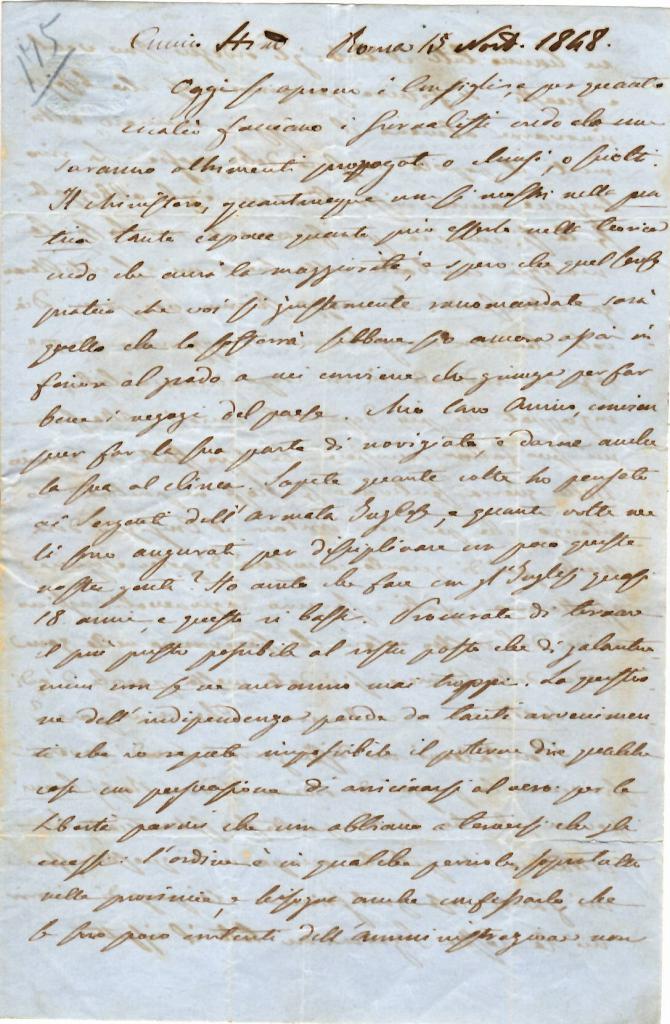 175
Amico Roma 15 Nov. 1848.
Oggi si aprono i Consigli, e per quanto
facciano i Giornalisti credo che non
saranno altrimenti prorogati o chiusi, o sciolti.
Il Ministero, quantunque non si mostri nella pra
tica tanto capace quanto può esserlo nella teorica
credo che avrà la maggiorità, e spero che quel senso
pratico che voi sì giustamente raccomandate sarà
quello che lo sosterrà, sebbene sia ancora assai in
feriore al grado a cui conviene che giunga per far
bene i negozi del paese. Mio Caro Amico, convien
pur far la sua parte di noviziato, e darne anche
la sua al clima. Sapete quante volte ho pensato
ai Sergenti dell'armata Inglese, e quante volte me
li sono augurati per disciplinare un poco queste
nostre genti? Ho avuto che fare con gl'Inglesi quasi
18 anni, e questo vi basti. Procurate di tornare
il più presto possibile al vostro posto che di galantuo
mini non se ne avranno mai troppi. La questio
ne dell'indipendenza pende da tanti avvenimen
ti che io reputo impossibile il poterne dire qualche
cosa con persuasione di avvicinarsi al vero: per la
Libertà parmi che non abbiano a temersi che gli
eccessi: l'ordine è in qualche pericolo, soprattutto
nelle provincie, e bisogna anche confessarlo che
le sono poco contenti dell'amministrazione non